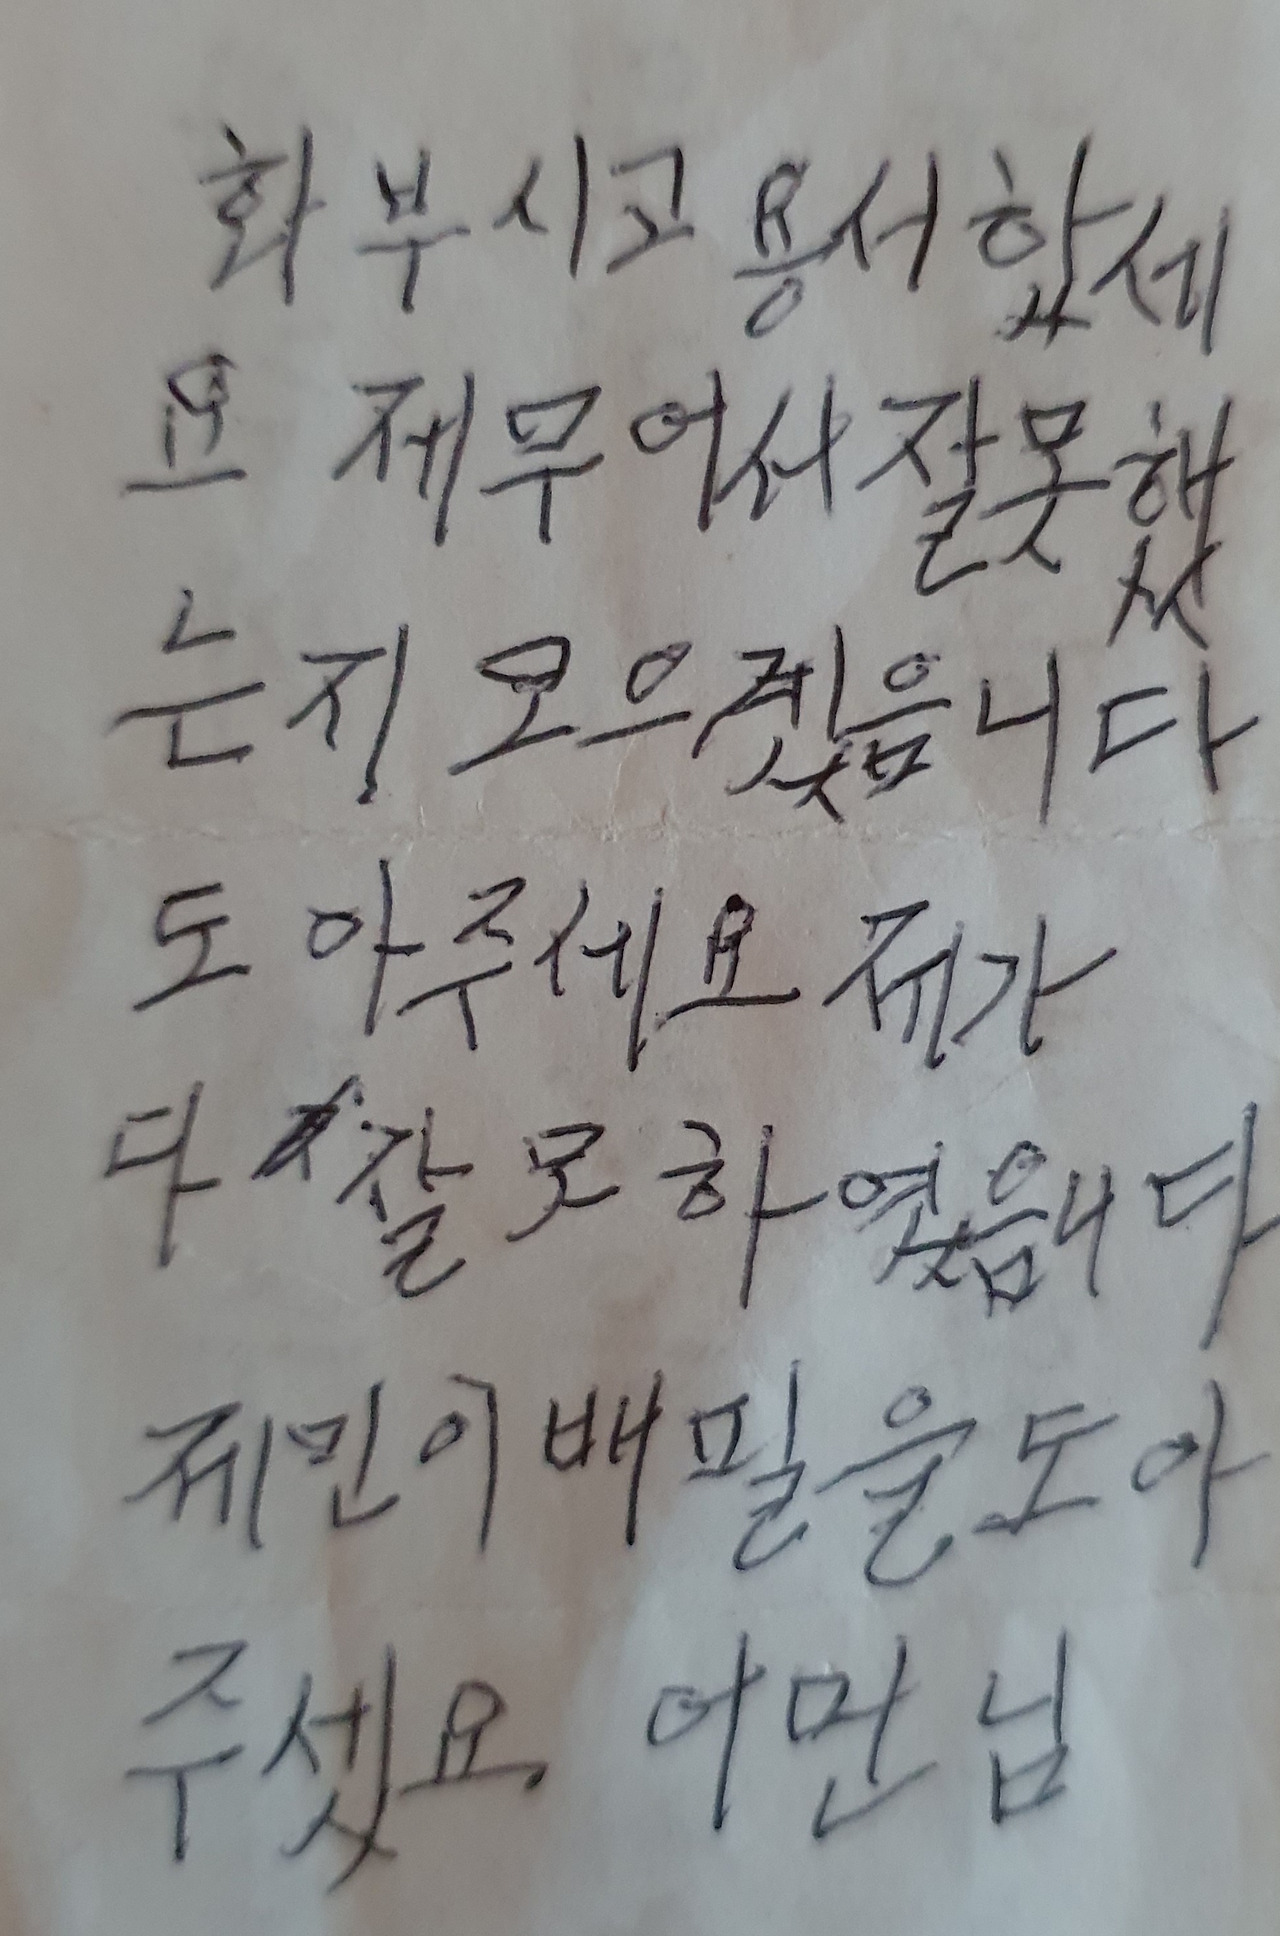 화부시고 용서핪세
요 제무어서 잘못했
는지 모으겠음니다
도아주세요 제가
다 잘못하엿음니다
제민이배필을도아
주셋요 어만님